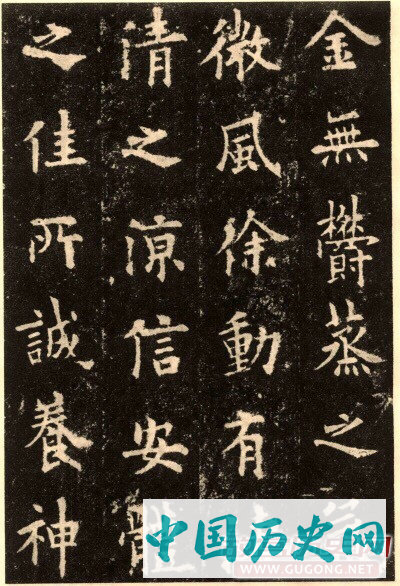 金無鬱蒸之
微風徐動有
清之涼信安體
之佳所誠養神
中国历史网
WWW.GUGONG.NET